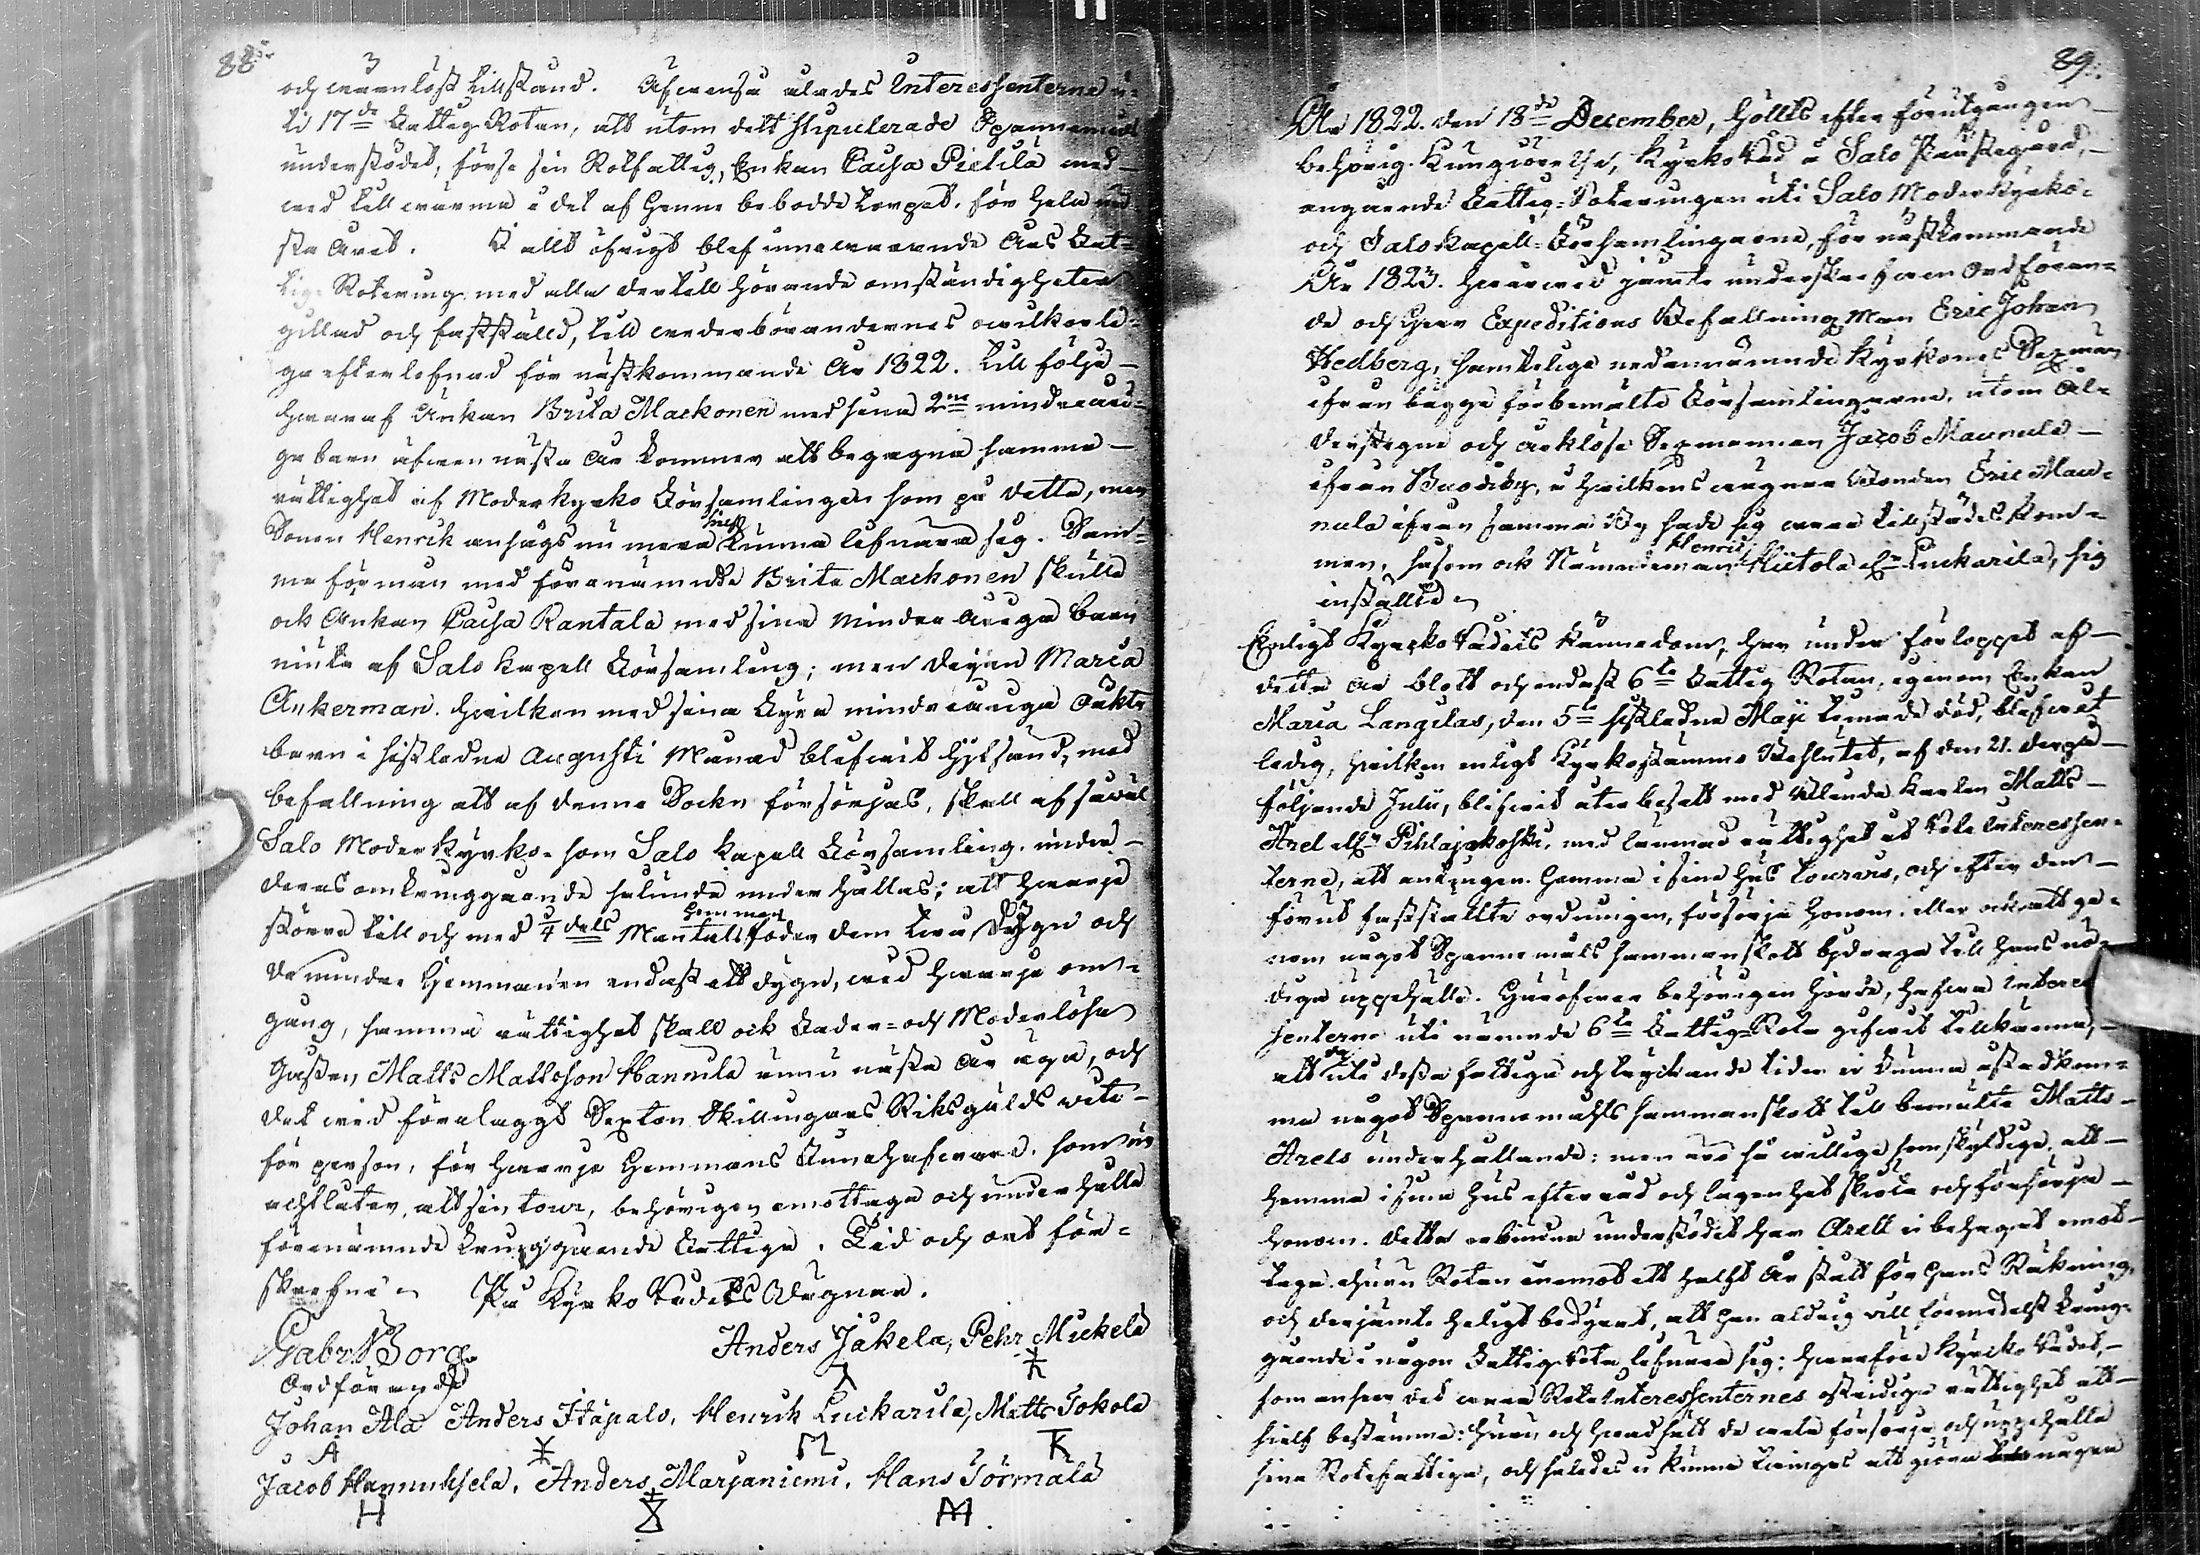 88.
och wårdlöst tillstånd. Äfwenså ålades Interessenterne u-
ti 17de Fattig Rotan, att utom dett stipulerade Spannemåls
understödet, förse sin Rotfattig, Enkan Caisa Pietilä med
wed till wärma i det af Henne bebodde Torpet, för hela näs-
sta Året. I allt öfrigt blef innewarande Års Fat-
tig-Rotering med alla dertill hörande omständigheter
gillad och fastställd, till wederbörandernes owilkorli-
ga efterlefnad för nästkommande År 1822. Till följe
hwaraf Änkan Brita Markonen med sina 2ne minderåri-
ga barn äfwen nästa år kommer att begagna samma
rättighet af Moderkyrko Församlingen som på detta, men
Sonen Henrik anságs nu mera sielf kunna lifnära sig. Sam-
ma förmån med förenämnde Brita Markonen skulle
ock Änkan Caisa Rantala med sina minderåriga barn
niuta af Salo Capell Församling; men Pigan Maria
Ankerman, hwilken med sina Fyra minderåriga oäkta
barn i sistledne Augusti Månad blifwit hitsänd, med
befallning att af denne Sockn försörjas, skall af såwäl
Salo Moderkyrko- som Salo Capell Församling, under
deras omkringgående sålunda underhållas; att hwarje
större till och med 3/4 dels Mantals hemman föder dem twå Dygn och
de mindre Hemmanen endast ett dygn, wid hwarje om-
gång, samma rättighet skall ock Fader- och Moderlösa
Gossen Matts Mattsson Hannila ännu nästa år äga, och
det wid förelaggt Sexton Skillingars Riksgälds wite
för person, för hwarje Hemmans Innehafware, som un-
derlåter, att sin tour, behörigen emottaga och underhålla
förenämnde kringgående Fattiga. Tid och ort för-
skrefne
På Kyrko Rådets Wägnar.
Gabr. Borg
Ordförande
Anders Jäkelä, Pehr Mickelä
Johan Ala Anders Itäpalo, Henrik Luckarila, Matts Jokela
A M K
Jacob Hannuksela, Anders Marjaniemi, Hans Törmälä
H M
89.
År 1822. den 18de December, hölls efter förutgången
behörig Kungiörelse, Kyrko Råd å Salo Prästegård,
angående Fattig-Roteringen uti Salo Moderkyrko-
och Salo Kapell-Församlingarne, för nästkommande
År 1823. Hwarwid jämte underskrefwen Ordföran-
de och Herr Expeditions Befallning Man Eric Johan
Hedberg, samtelige nedannämnde Kyrkones Sexmän
ifrån bägge förbemälte Församlingarne, utom Ål-
derstegne och orklöse Sexmannen Jacob Maunula
ifrån Brodeby, å hwilkens wägnar Bonden Eric Mau-
nula ifrån samma By hade sig wara tillstädes kom-
men, såsom ock Nämndeman Henric Kiitola elr Luckarila, sig
inställde
Enligt Kyrko Rådets kännedom, har under förloppet af
detta år blott och endast 6te Fattig Rotan, igenom Enkan
Maria Langilas, den 5te sistledne Maji timade död, blifwit
ledig, hwilken enligt Kyrkostämmo Beslutet, af den 21. derpå
följande Julii, blifwit åter besatt med ållande karlen Matts
Arel elr Pihlajakoski, med lämnad rättighet åt Rote Interessen-
terne, att antingen hemma i sina hus tourvis, och efter den
förut faststälte ordningen, försörja honom, eller ock att ge-
nom något Spannemåls sammanskott bidraga till hans nö-
diga uppehälle. Häröfwer behörigen hörde, hafwa Interes-
senterne uti nämnde 6te Fattig-Rota gifwit tillkänna,
att de uti dessa fattiga och tryckande tider ei kunna åstadkom-
ma något Spannemåhls sammanskott till bemälte Matts
Arels underhållande: men äro så willige som skyldige, att
hemma i sina hus efter råd och lägenhet sköta och försörja
honom. Detta erbiudna understödet har Arell ei behagat emot-
taga, ehuru Rotan ännemot ett halft År stått för hans Räkning,
och derjämte heligt bedyrat, att han aldrig vill förmedelst kring-
gående i någon Fattig Rota lifnära sig; hwarföre Kyrko Rådet,
som anser det wara Rote Interessenternes ostridiga rättighet att
sielf bestämma: huru och hwad sätt de wela försörja och uppehålla
sina Rotefattiga, och således ei kunna twingas att giöra någon